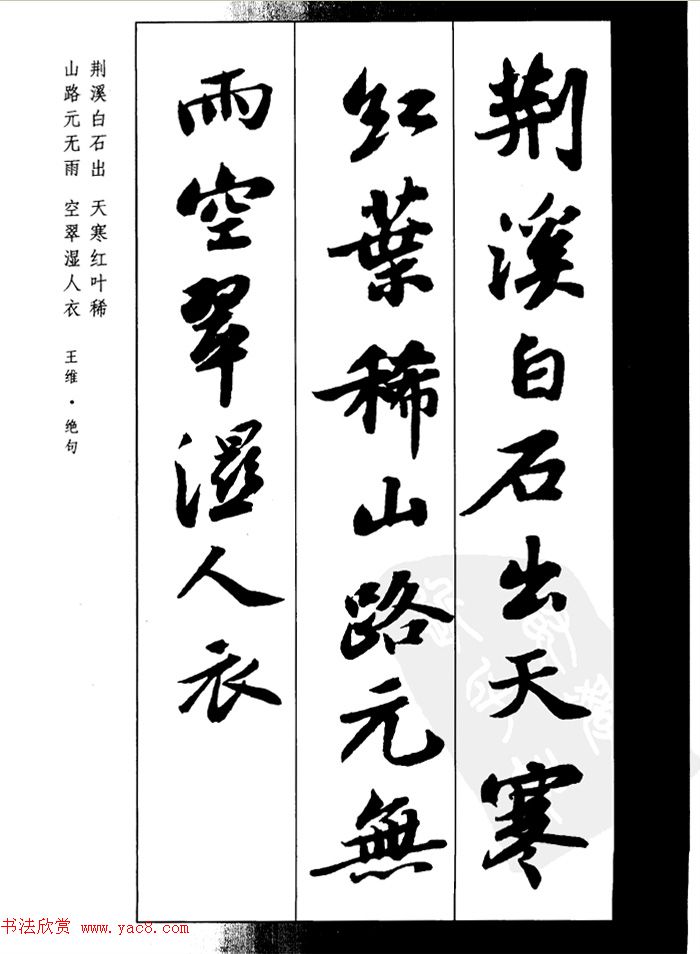 荆溪白石出天寒
红葉稀山路元無
雨空翠濕人衣
荆溪白石出 天寒红叶稀
山路元无雨 空翠湿人衣 王维·绝句
书法欣赏 www.yac8.com